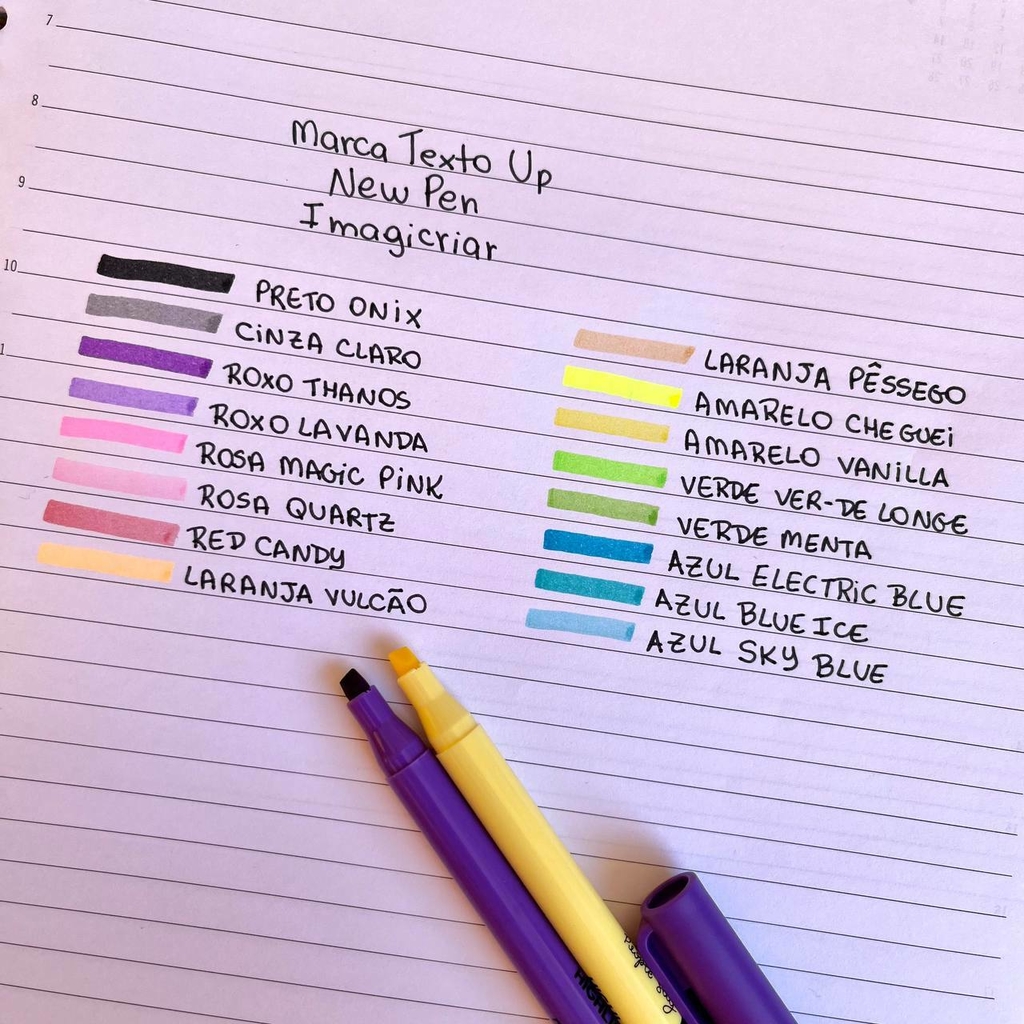 7
8
9
10
Marca Texto Up
New Pen
Imagicriar
PRETO ONIX
CINZA CLARO
ROXO THANOS
ROXO LAVANDA
ROSA MAGIC PINK
ROSA QUARTZ
RED CANDY
LARANJA VULCÃO
LARANJA PÊSSEGO
AMARELO CHEGUEI
AMARELO VANILLA
VERDE VER-DE LONGE
VERDE MENTA
AZUL ELECTRIC BLUE
AZUL BLUE ICE
AZUL SKY BLUE